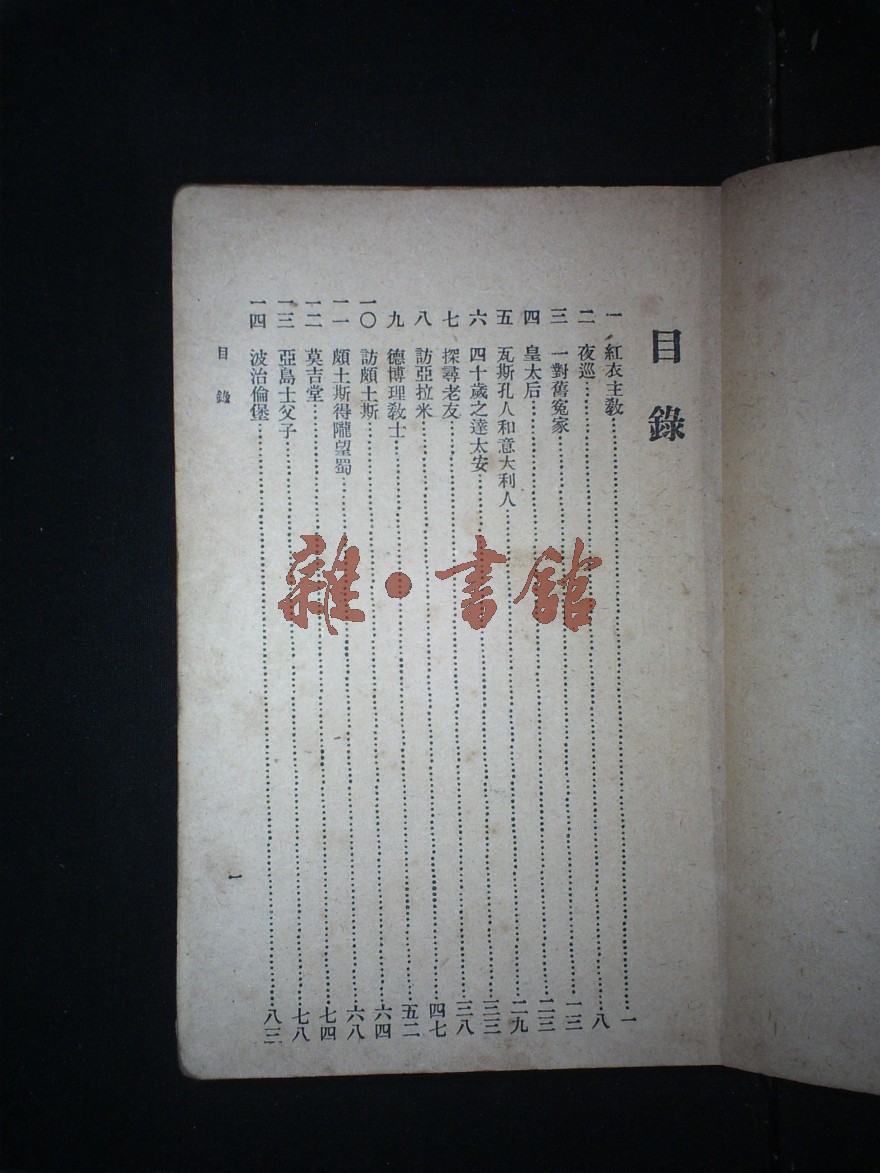 目錄
一 紅衣主教……一
二 夜巡……八
三 一對舊冤家……一三
四 皇太后……二三
五 瓦斯孔人和意大利人……二九
六 四十歲之達太安……三三
七 探尋老友……三八
八 訪亞拉米……四七
九 德博理教士……五二
一〇 訪頗士斯……六四
一一 頗士斯得隴望蜀……六八
一二 莫吉堂……七四
一三 亞島士父子……七八
一四 波治倫堡……八三
目錄
一
雜·書館